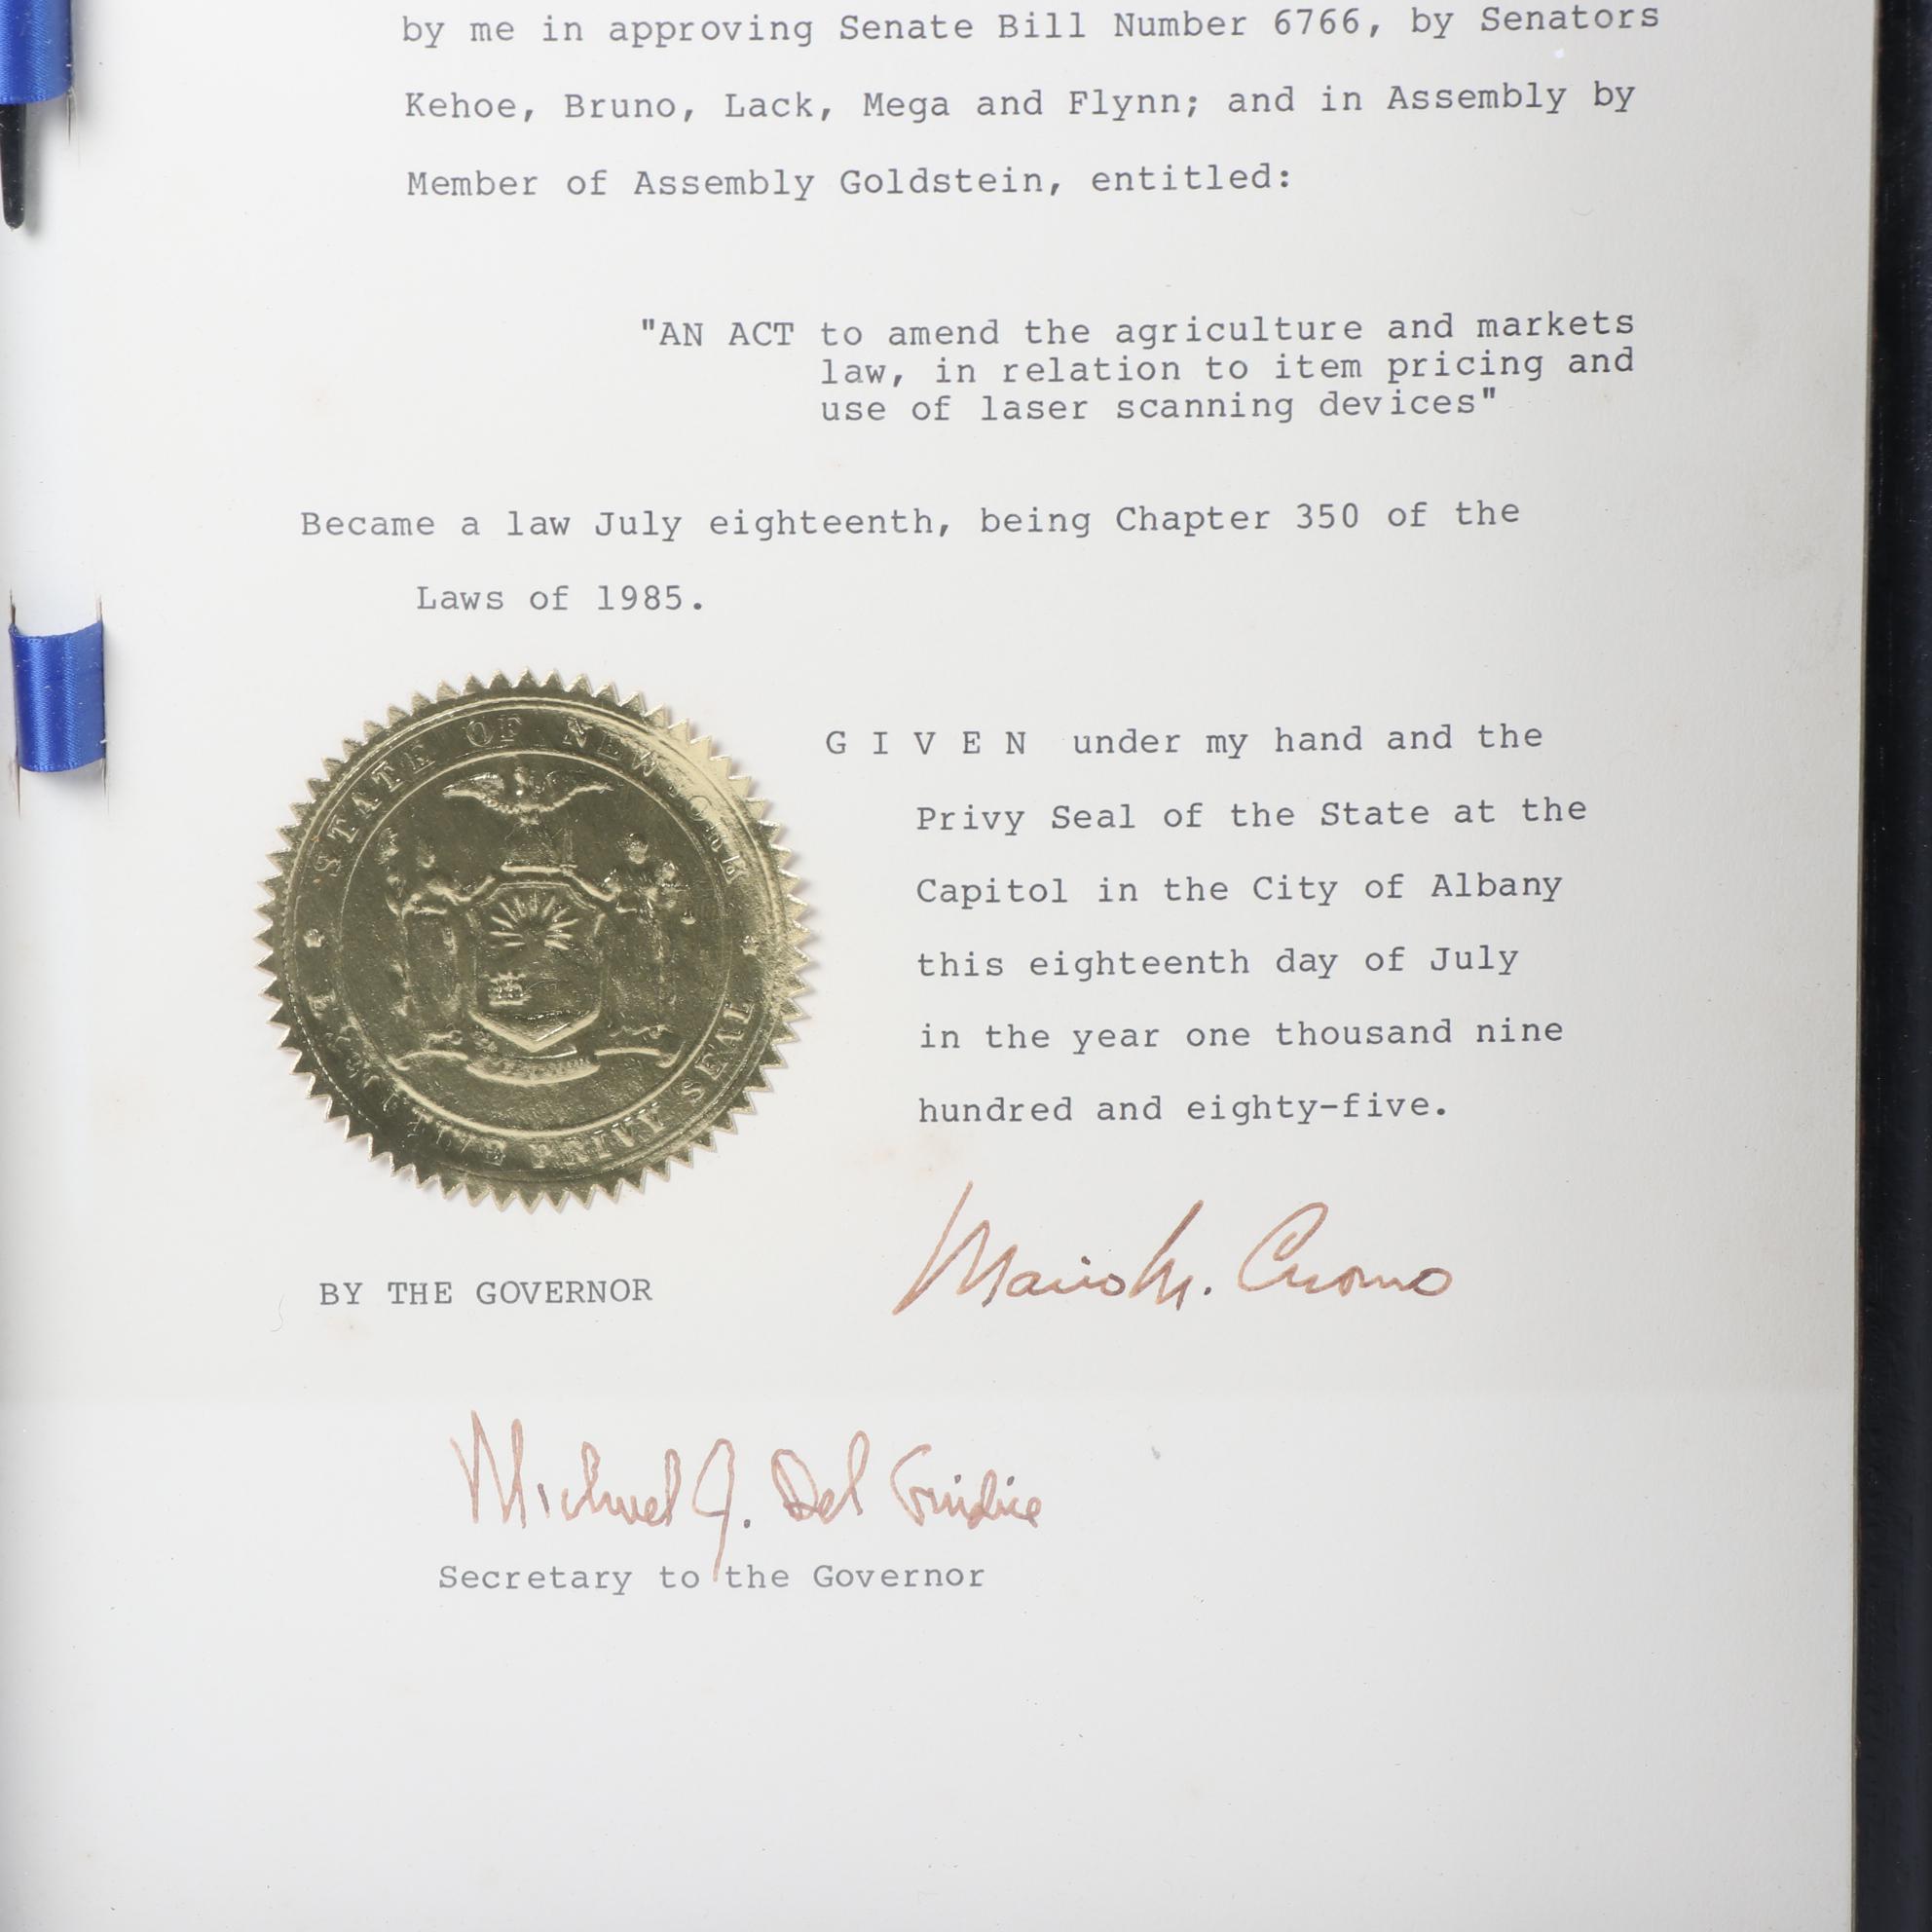 by me in approving Senate Bill Number 6766, by Senators
Kehoe, Bruno, Lack, Mega and Flynn; and in Assembly by
Member of Assembly Goldstein, entitled:
"AN ACT to amend the agriculture and markets
law, in relation to item pricing and
use of laser scanning devices"
Became a law July eighteenth, being Chapter 350 of the
Laws of 1985.
STATE OF NEW YORK
EXECUTIVE PRIVY SEAL
G I V E N under my hand and the
Privy Seal of the State at the
Capitol in the City of Albany
this eighteenth day of July
in the year one thousand nine
hundred and eighty-five.
Mario M. Cuomo
BY THE GOVERNOR
Michael J. Del Giudice
Secretary to the Governor